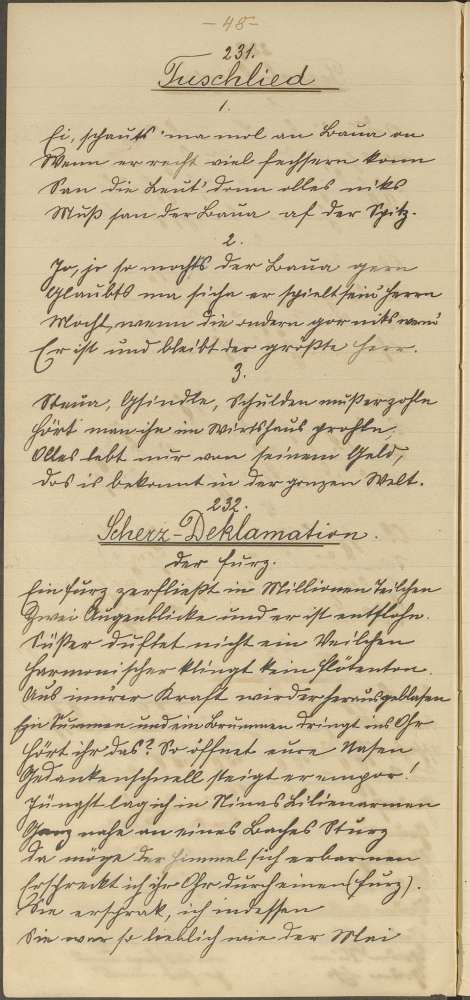 - 48 -
231.
Tuschlied
1.
Ei, schaut's 'ma mol an Baua an
Wenn er recht viel fechsern konn
San die Leut' dann olles niks
Muß san der Baua af der Spitz.
2.
Jo, jo so mocht's der Baua gern
Glaubts ma sicha er spielt sein' Herrn
Mocht, wenn die ondern gor niks wern'
Er ist und bleibt der größte Herr.
3.
Steua, Gsindle, Schulden muß er zohln
Hört man ihn im Wirtshaus prohln,
Olles lebt nur von seinem Geld,
das is bekannt in der gonzen Welt.
232.
Scherz-Deklamation.
Der Furz.
Ein Furz zerfließt in Millionen Teilchen
Zwei Augenblicke und er ist entflohn.
Süßer duftet nicht ein Veilchen
Harmonischer klingt kein Flötenton.
Aus innrer Kraft wird er herausgeblasen
Ein Summen und ein Brummen dringt ins Ohr
Hört ihr das? So öffnet eure Nasen
Gedankenschnell steigt er empor!
Jüngst lag ich in Ninas Lilienarmen
Ganz nahe an eines Baches Sturz
Da möge der Himmel sich erbarmen
Erschreckt ich ihr Ohr durch einen (Furz).
Sie erschrak, ich indessen
Sie war so lieblich wie der Mai